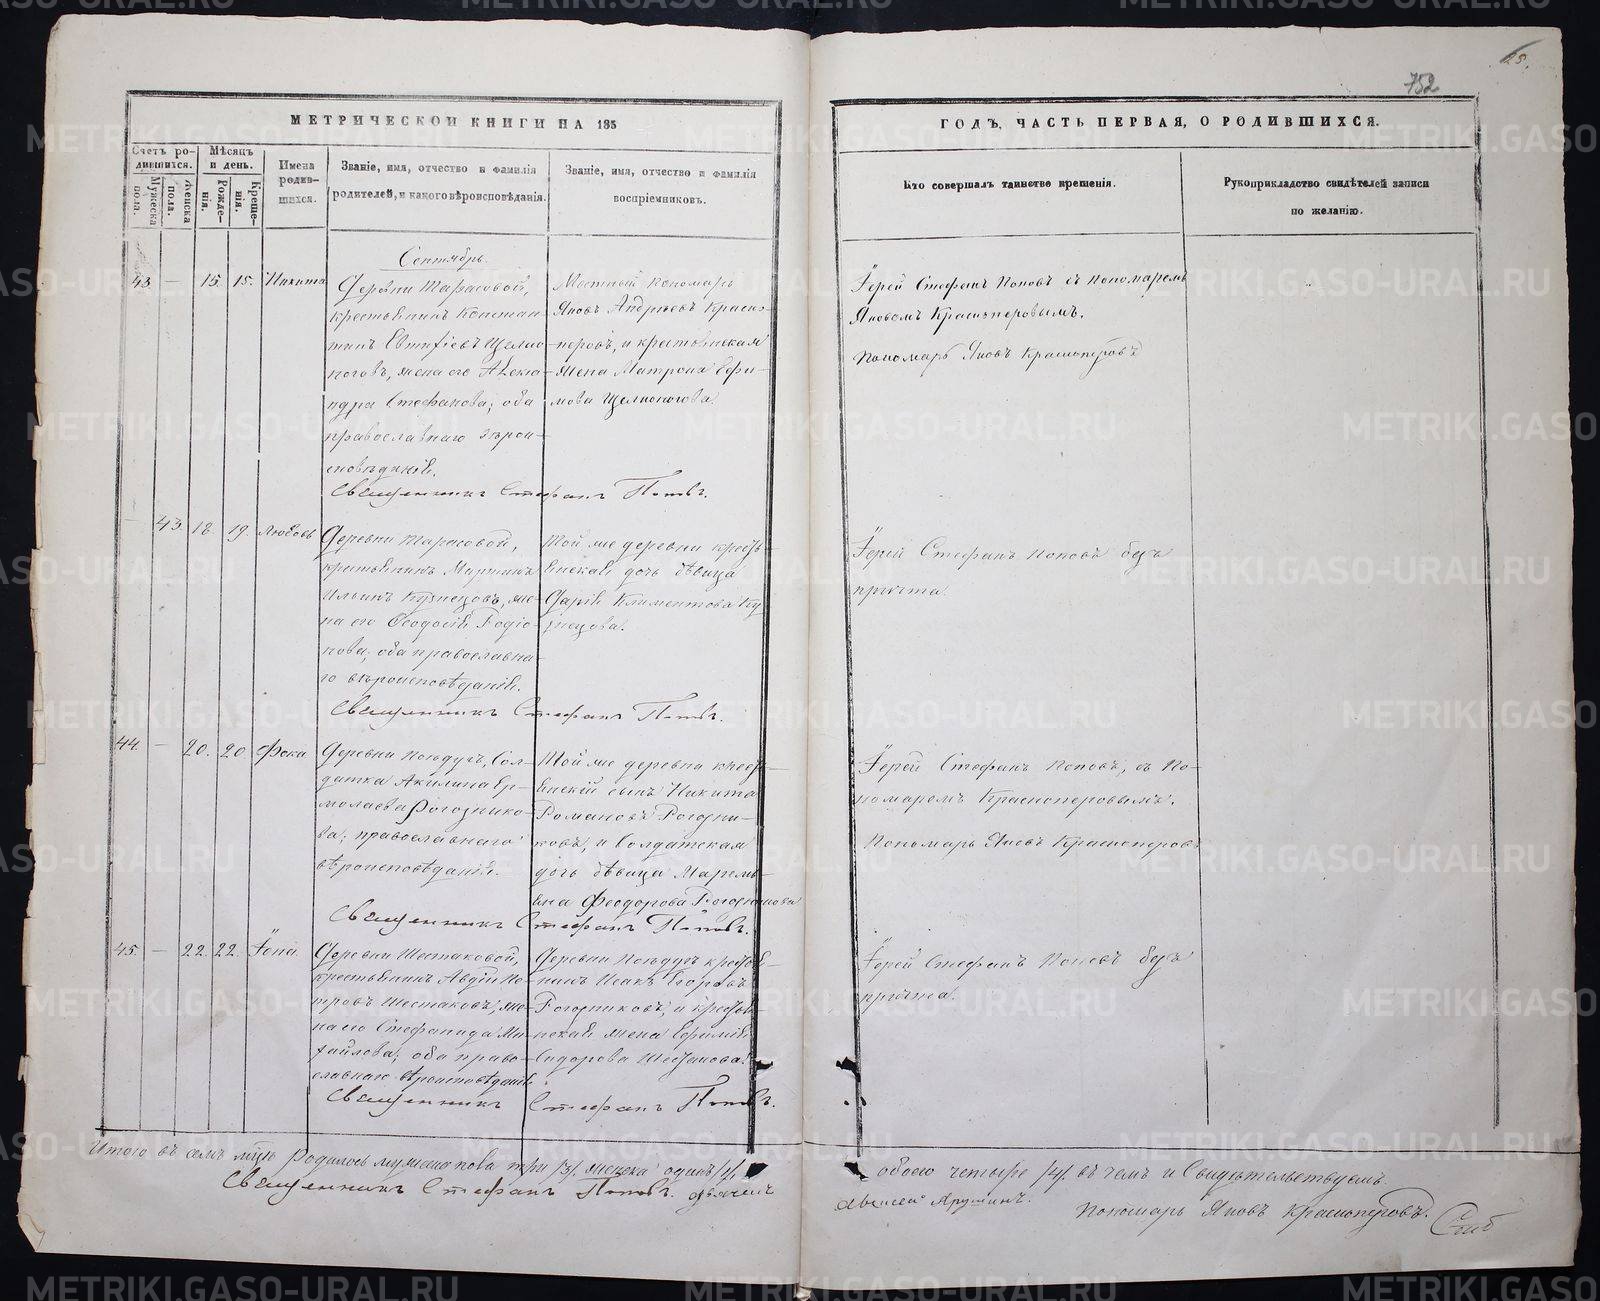 752
МЕТРИЧЕСКОЙ КНИГИ НА 185
ГОДЪ, ЧАСТЬ ПЕРВАЯ, О РОДИВШИХСЯ.
Счетъ родившихся.
Мужеска пола.
Женска пола.
Мѣсяцъ и день.
Рожденія.
Крещенія.
Имена родившихся.
Званіе, имя, отчество и фамилія
родителей, и какого вѣроисповѣданія.
Званіе, имя, отчество и фамилія
воспріемниковъ.
Кто совершалъ таинство крещенія.
Рукоприкладство свидѣтелей записи
по желанію.
Сентябрь.
43 — 15. 15. Никита
Деревни Тарасовой,
крестьянинъ Констан-
тинъ Евтифіевъ Щелко-
ноговъ, жена его Алекса-
ндра Стефанова; оба
православнаго вѣрои-
сповѣданія.
Мѣстный пономарь
Яковъ Андреевъ Красно-
перовъ, и крестьянская
жена Матрона Ефи-
мова Щелконогова.
Іерей Стефанъ Поповъ съ пономаремъ
Яковомъ Красноперовымъ.
Пономарь Яковъ Красноперовъ
Священникъ Стефанъ Поповъ.
— 43. 18. 19. Любовь
Деревни Тарасовой,
крестьянинъ
Ильинъ Кузнецовъ, же-
на его Ѳеодосія Родіо-
нова; оба православна-
го вѣроисповѣданія.
Той же деревни кресть-
янская дочь дѣвица
Дарія Климентова Ку-
знецова.
Іерей Стефанъ Поповъ безъ
причта.
Священникъ Стефанъ Поповъ.
44. — 20. 20. Фока
Деревни Сол-
датка Акилина Ер-
молаева Рогозинико-
ва; православнаго
вѣроисповѣданія.
Той же деревни кресть-
янскій сынъ Никита
Романовъ
ковъ, и Солдатская
дочь дѣвица Маремь-
яна Феодорова
Іерей Стефанъ Поповъ, съ По-
номаремъ Красноперовымъ.
Пономарь Яковъ Красноперовъ
Священникъ Стефанъ Поповъ.
45. — 22. 22. Іона.
Деревни Шестаковой,
крестьянинъ Авдій Пе-
тровъ Шестаковъ, же-
на его Стефанида Ми-
хайлова; оба право-
славнаго вѣроисповѣданія
Деревни кресть-
нинъ Исакъ Егоровъ
и кресть-
янская жена Евфимія
Сидорова Шестакова.
Іерей Стефанъ Поповъ безъ
причта.
Священникъ Стефанъ Поповъ.
Итого въ семъ мцѣ родилось мужеска пола три /3/, женска одинъ /1/,
обоего четыре /4/. въ чемъ и Свидѣтельствуемъ.
Священникъ Стефанъ Поповъ. Дьячекъ
Алексей
Пономарь Яковъ Красноперовъ.
METRIKI.GASO-URAL.RU